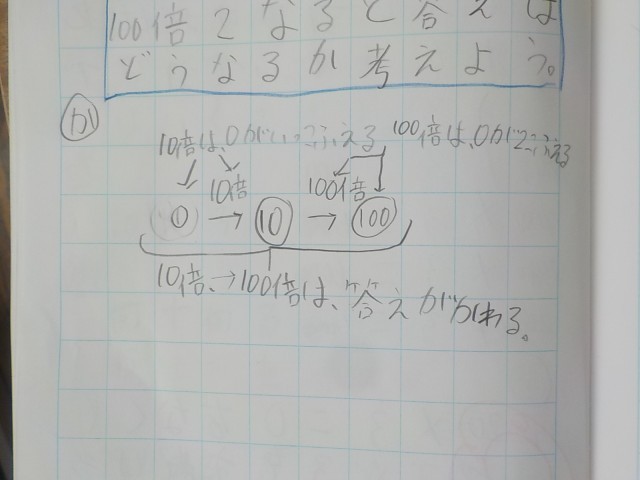 100倍になると答えは
どうなるか考えよう。
か
10倍は、0がいっこふえる 100倍は、0が2こふえる
10倍 100倍
0 → 10 → 100
10倍、→100倍は、答えがかわる。